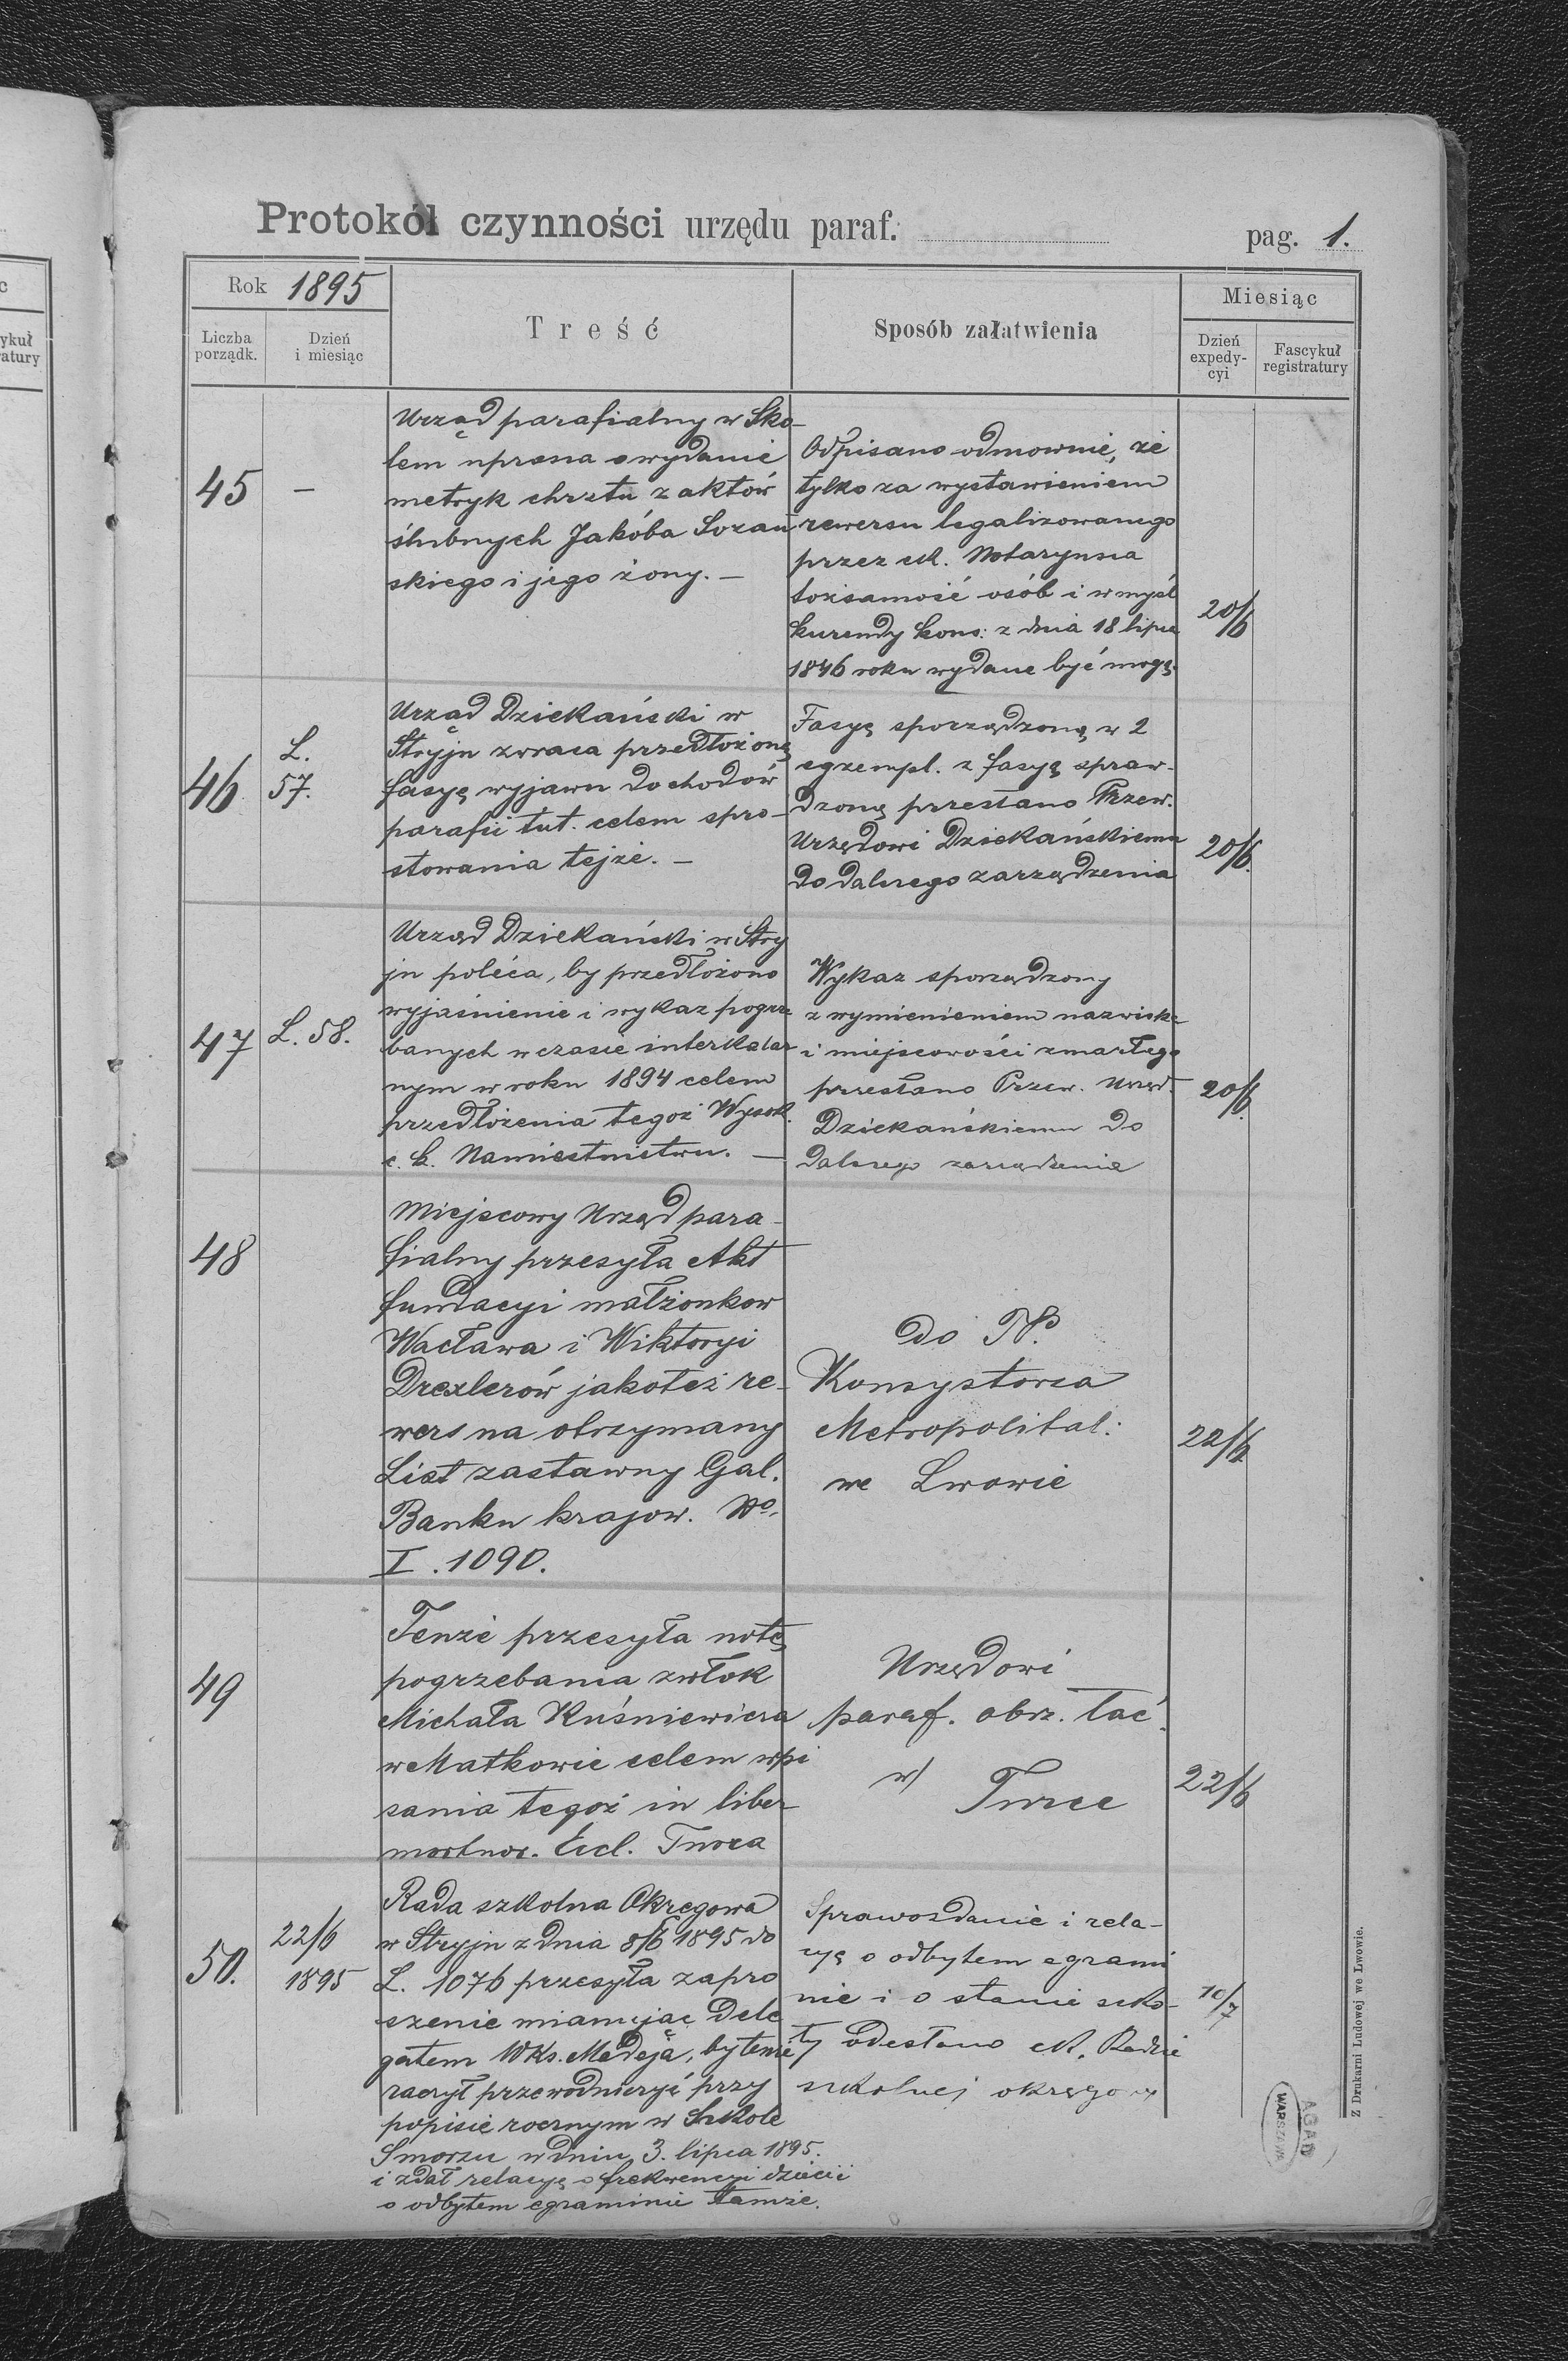 Protokół czynności urzędu paraf.
pag. 1.
Rok 1895
Liczba porządk.
Dzień i miesiąc
Treść
Sposób załatwienia
Miesiąc
Dzień expedy-cyi
Fascykuł registratury
45
—
Urząd parafialny w Sko-
lem uprasza o wydanie
metryk chrztu z aktów
ślubnych Jakóba Sozań
skiego i jego żony. —
Odpisano odmownie, że
tylko za wystawieniem
rewersu legalizowanego
przez ck. Notaryusza
tożsamość osób i w myśl
kurendy kons: z dnia 18 lipca
1846 roku wydane być mogą.
20/6
46
L.
57.
Urząd Dziekański w
Stryju zwraca przedłożoną
fasyę wyjawu dochodów
parafii tut. celem spro-
stowania tejże. —
Fasyę sporządzoną w 2
egzempl. z fasyą spraw-
dzoną przesłano Przew.
Urzędowi Dziekańskiemu
do dalszego zarządzenia
20/6.
47
L. 58.
Urząd Dziekański w Stry
ju poleca, by przedłożono
wyjaśnienie i wykaz pogrze
banych w czasie interkalar
nym w roku 1894 celem
przedłożenia tegoż Wysok.
c. k. Namiestnictwu. —
Wykaz sporządzony
z wymienieniem nazwiska
i miejscowości zmarłego
przesłano Przew. Urzęd.
Dziekańskiemu do
dalszego zarządzenia
20/6.
48
Miejscowy Urząd para-
fialny przesyła Akt
fundacyi małżonkow
Wacława i Wiktoryi
Drexlerów jakoteż re-
wers na otrzymany
List zastawny Gal.
Banku krajow. No.
I. 1090.
do
Konsystorza
Metropolital:
we Lwowie
22/6
49
Tenże przesyła notę
pogrzebania zwłok
Michała Kuśniewicza
w Matkowie celem wpi
sania tegoż in liber
mortuor. Eccl. Turca
Urzędowi
paraf. obrz. łać.
w/ Turce
22/6
50.
22/6
1895
Rada szkolna Okręgowa
w Stryju z dnia 8/6 1895 do
L. 1076 przesyła zapro
szenie mianując Dele
gatem WKs. Madeja, by tenże
raczył przewodniczyć przy
popisie rocznym w Szkole
Smorzu w dniu 3. lipca 1895.
i zdał relacyę o frekwencyi dzieci i
o odbytem egzaminie tamże.
Sprawozdanie i rela-
cyę o odbytem egzami
nie i o stanie szko-
ły odesłano ck. Radzie
szkolnej okręgow
10/7
AGAD
WARSZAWA
Z Drukarni Ludowej we Lwowie.
ykuł
ratury